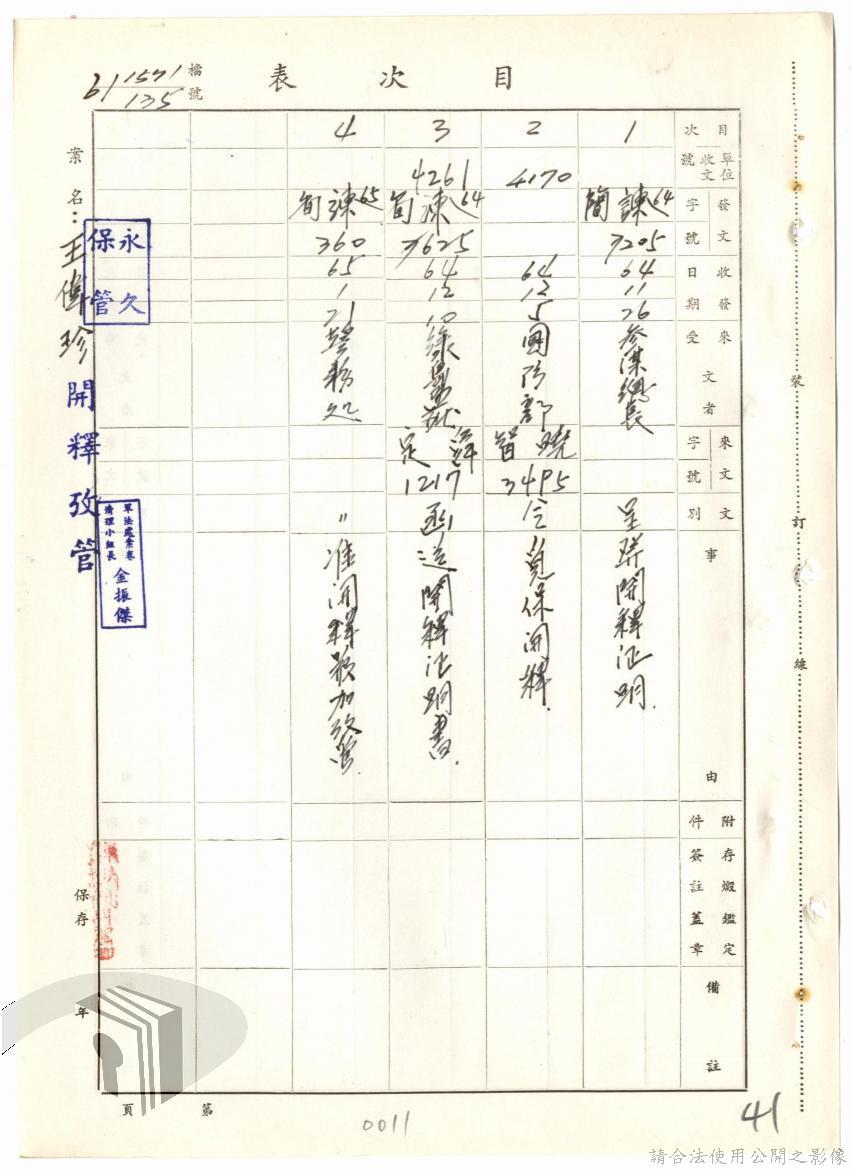 目次表
檔號
1571
135
案名：
王偉珍
開釋攷管
永久
保管
軍法處案卷
清理小組長
金振傑
目次
單位收文號
發文字號
收發日期
來受文者
來文字號
文別
事由
附件
存燬鑑定
簽註蓋章
備註
1
64
諫
7205
64
11
26
參謀總長
呈
開釋證明.
2
4170
64
12
5
國防部
3495
令
覓保開釋.
3
4261
64
7625
64
12
10
1217
函
送開釋证明書.
4
65
360
65
1
21
警務處
〃
准開釋
加攷管.
裝訂線
保存 年
第 頁
0011
41
請合法使用公開之影像